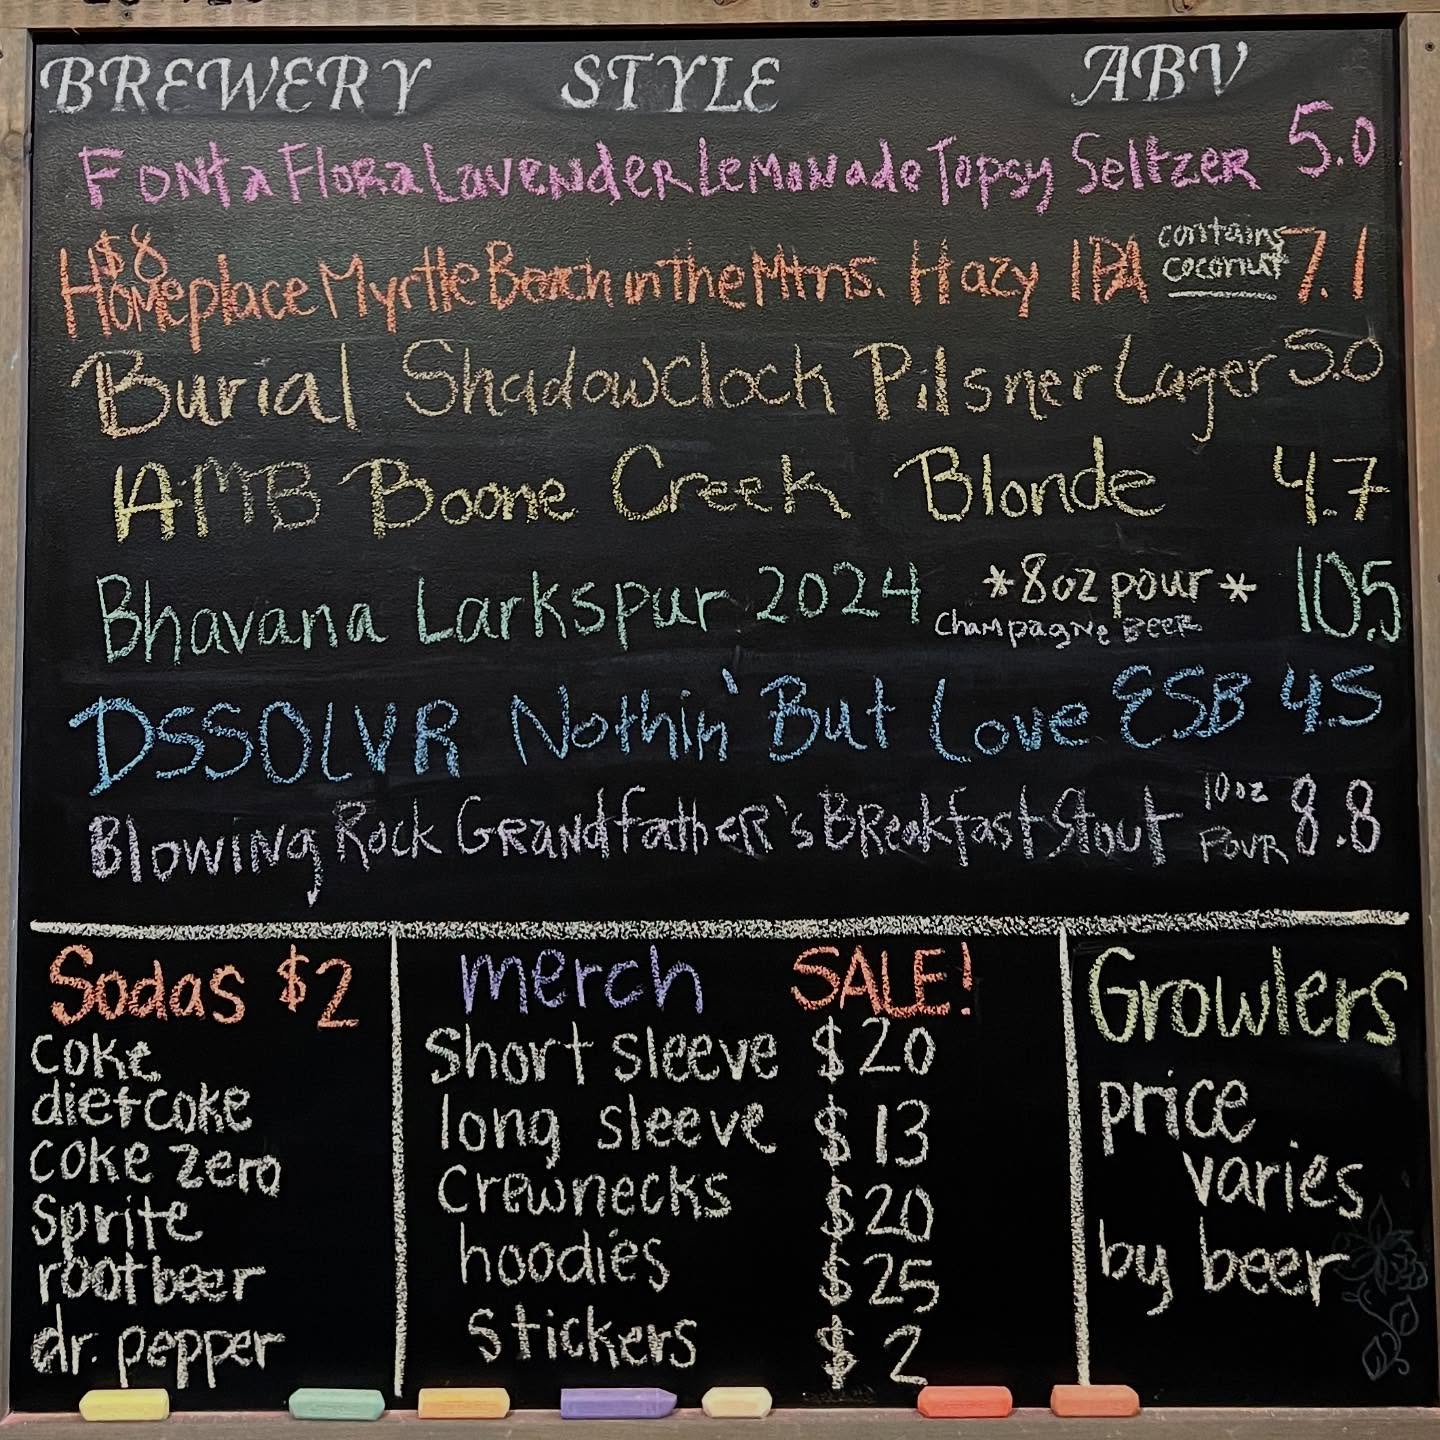 BREWERY STYLE ABV
Fonta Flora Lavender Lemonade Topsy Seltzer 5.0
$8 contains
Homeplace Myrtle Beach in The Mtns. Hazy IPA coconut 7.1
Burial Shadowclock Pilsner Lager 5.0
AMB Boone Creek Blonde 4.7
Bhavana Larkspur 2024 *8oz pour* 10.5
Champagne Beer
DSSOLVR Nothin' But Love ESB 4.5
Blowing Rock Grandfather's Breakfast Stout 10oz Pour 8.8
Sodas $2
coke
diet coke
coke zero
Sprite
root beer
dr. pepper
merch SALE!
Short sleeve $20
long sleeve $13
Crewnecks $20
hoodies $25
stickers $2
Growlers
price
varies
by beer